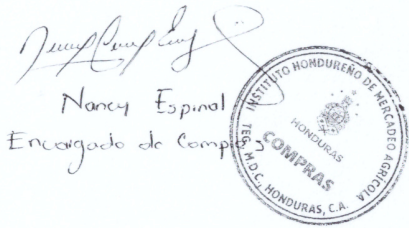 Nancy Espinal
Encargado de Compras
INSTITUTO HONDUREÑO DE MERCADEO AGRICOLA
HONDURAS
COMPRAS
TEG. M.D.C., HONDURAS, C.A.